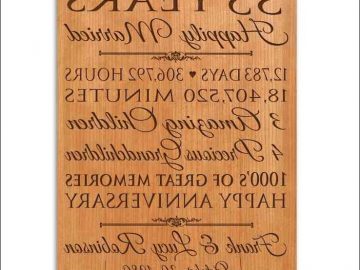 35 YEARS
Happily Married
12,783 DAYS ♥ 306,792 HOURS
18,407,520 MINUTES
3 Amazing Children
4 Precious Grandchildren
1000's OF GREAT MEMORIES
HAPPY ANNIVERSARY
Frank & Lucy Robinson
October 20, 1980